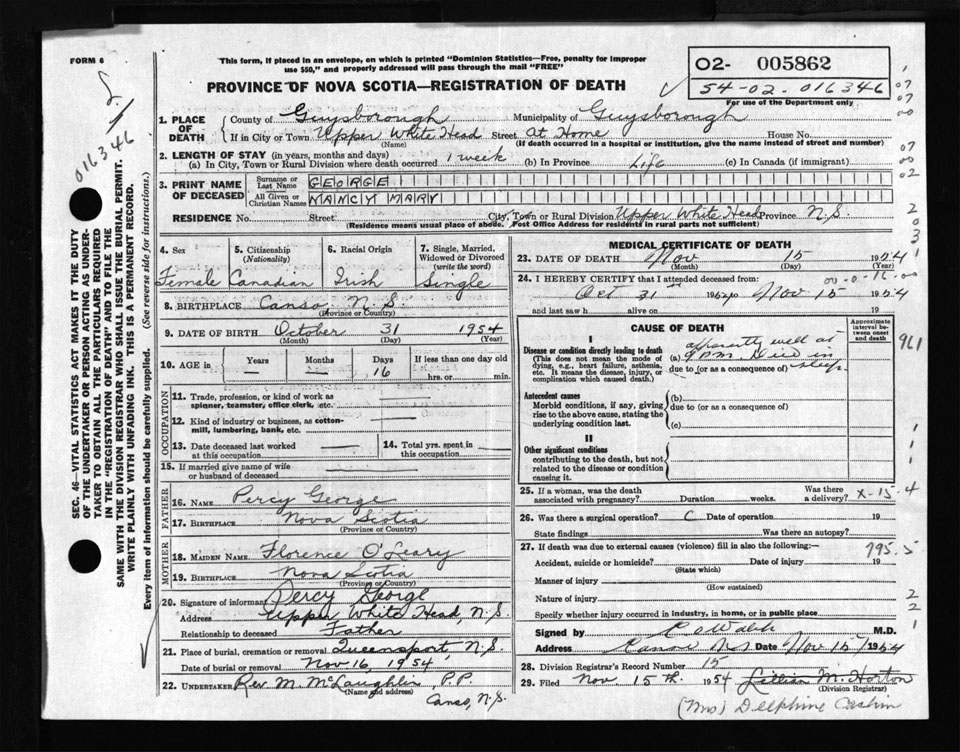 FORM 6
This form, if placed in an envelope, on which is printed "Dominion Statistics—Free, penalty for improper
use $50," and properly addressed will pass through the mail "FREE"
O2- 005862
54-02-016346
For use of the Department only
PROVINCE OF NOVA SCOTIA—REGISTRATION OF DEATH
016346
SEC. 46—VITAL STATISTICS ACT MAKES IT THE DUTY
OF THE UNDERTAKER OR PERSON ACTING AS UNDER-
TAKER TO OBTAIN ALL THE PARTICULARS REQUIRED
IN THE "REGISTRATION OF DEATH" AND TO FILE THE
SAME WITH THE DIVISION REGISTRAR WHO SHALL ISSUE THE BURIAL PERMIT.
WRITE PLAINLY WITH UNFADING INK. THIS IS A PERMANENT RECORD.
Every item of information should be carefully supplied. (See reverse side for instructions.)
1. PLACE OF DEATH
County of Guysborough Municipality of Guysborough
If in City or Town Upper White Head Street At Home House No.
(Name) (If death occurred in a hospital or institution, give the name instead of street and number)
2. LENGTH OF STAY (in years, months and days)
(a) In City, Town or Rural Division where death occurred 1 week (b) In Province Life (c) In Canada (if immigrant)
3. PRINT NAME OF DECEASED
Surname or Last Name GEORGE
All Given or Christian Names NANCY MARY
RESIDENCE No. Street: City, Town or Rural Division Upper White Head Province N.S.
(Residence means usual place of abode. Post Office Address for residents in rural parts not sufficient)
4. Sex 5. Citizenship (Nationality) 6. Racial Origin 7. Single, Married, Widowed or Divorced (write the word)
Female Canadian Irish Single
8. BIRTHPLACE Canso N.S.
(Province or Country)
9. DATE OF BIRTH October 31 1954
(Month) (Day) (Year)
10. AGE in Years Months Days If less than one day old
— — 16 hrs. or min.
OCCUPATION
11. Trade, profession, or kind of work as
spinner, teamster, office clerk, etc.
12. Kind of industry or business, as cotton-
mill, lumbering, bank, etc.
13. Date deceased last worked
at this occupation
14. Total yrs. spent in
this occupation
15. If married give name of wife
or husband of deceased
FATHER
16. NAME Percy George
17. BIRTHPLACE Nova Scotia
(Province or Country)
MOTHER
18. MAIDEN NAME Florence O'Leary
19. BIRTHPLACE Nova Scotia
(Province or Country)
20. Signature of informant Percy George
Address Upper White Head, N.S.
Relationship to deceased Father
21. Place of burial, cremation or removal Queensport, N.S.
Date of burial or removal Nov 16, 1954
22. UNDERTAKER Rev. M. McLaughlin P.P.
(Name and address)
Canso, N.S.
MEDICAL CERTIFICATE OF DEATH
23. DATE OF DEATH Nov 15 1954
(Month) (Day) (Year)
24. I HEREBY CERTIFY that I attended deceased from:
Oct 31 to Nov 15 1954
and last saw h alive on 19
CAUSE OF DEATH
Approximate interval between onset and death
I
Disease or condition directly leading to death
(This does not mean the mode of
dying, e.g., heart failure, asthenia,
etc. It means the disease, injury, or
complication which caused death.)
(a) apparently well at
9 P.M. Died in
sleep.
due to (or as a consequence of)
Antecedent causes
Morbid conditions, if any, giving
rise to the above cause, stating the
underlying condition last.
(b)
due to (or as a consequence of)
(c)
II
Other significant conditions
contributing to the death, but not
related to the disease or condition
causing it.
25. If a woman, was the death
associated with pregnancy? Duration weeks. Was there a delivery? X-15
26. Was there a surgical operation? Date of operation 19
State findings Was there an autopsy?
27. If death was due to external causes (violence) fill in also the following: 795.5
Accident, suicide or homicide? Date of injury 19
(State which)
Manner of injury
(How sustained)
Nature of injury
Specify whether injury occurred in industry, in home, or in public place
Signed by M.D.
Address Canso N.S. Date Nov 15 1954
28. Division Registrar's Record Number 15
29. Filed Nov 15th. 1954 Lillian M. Horton
(Division Registrar)
(Mrs) Delphine Cashin